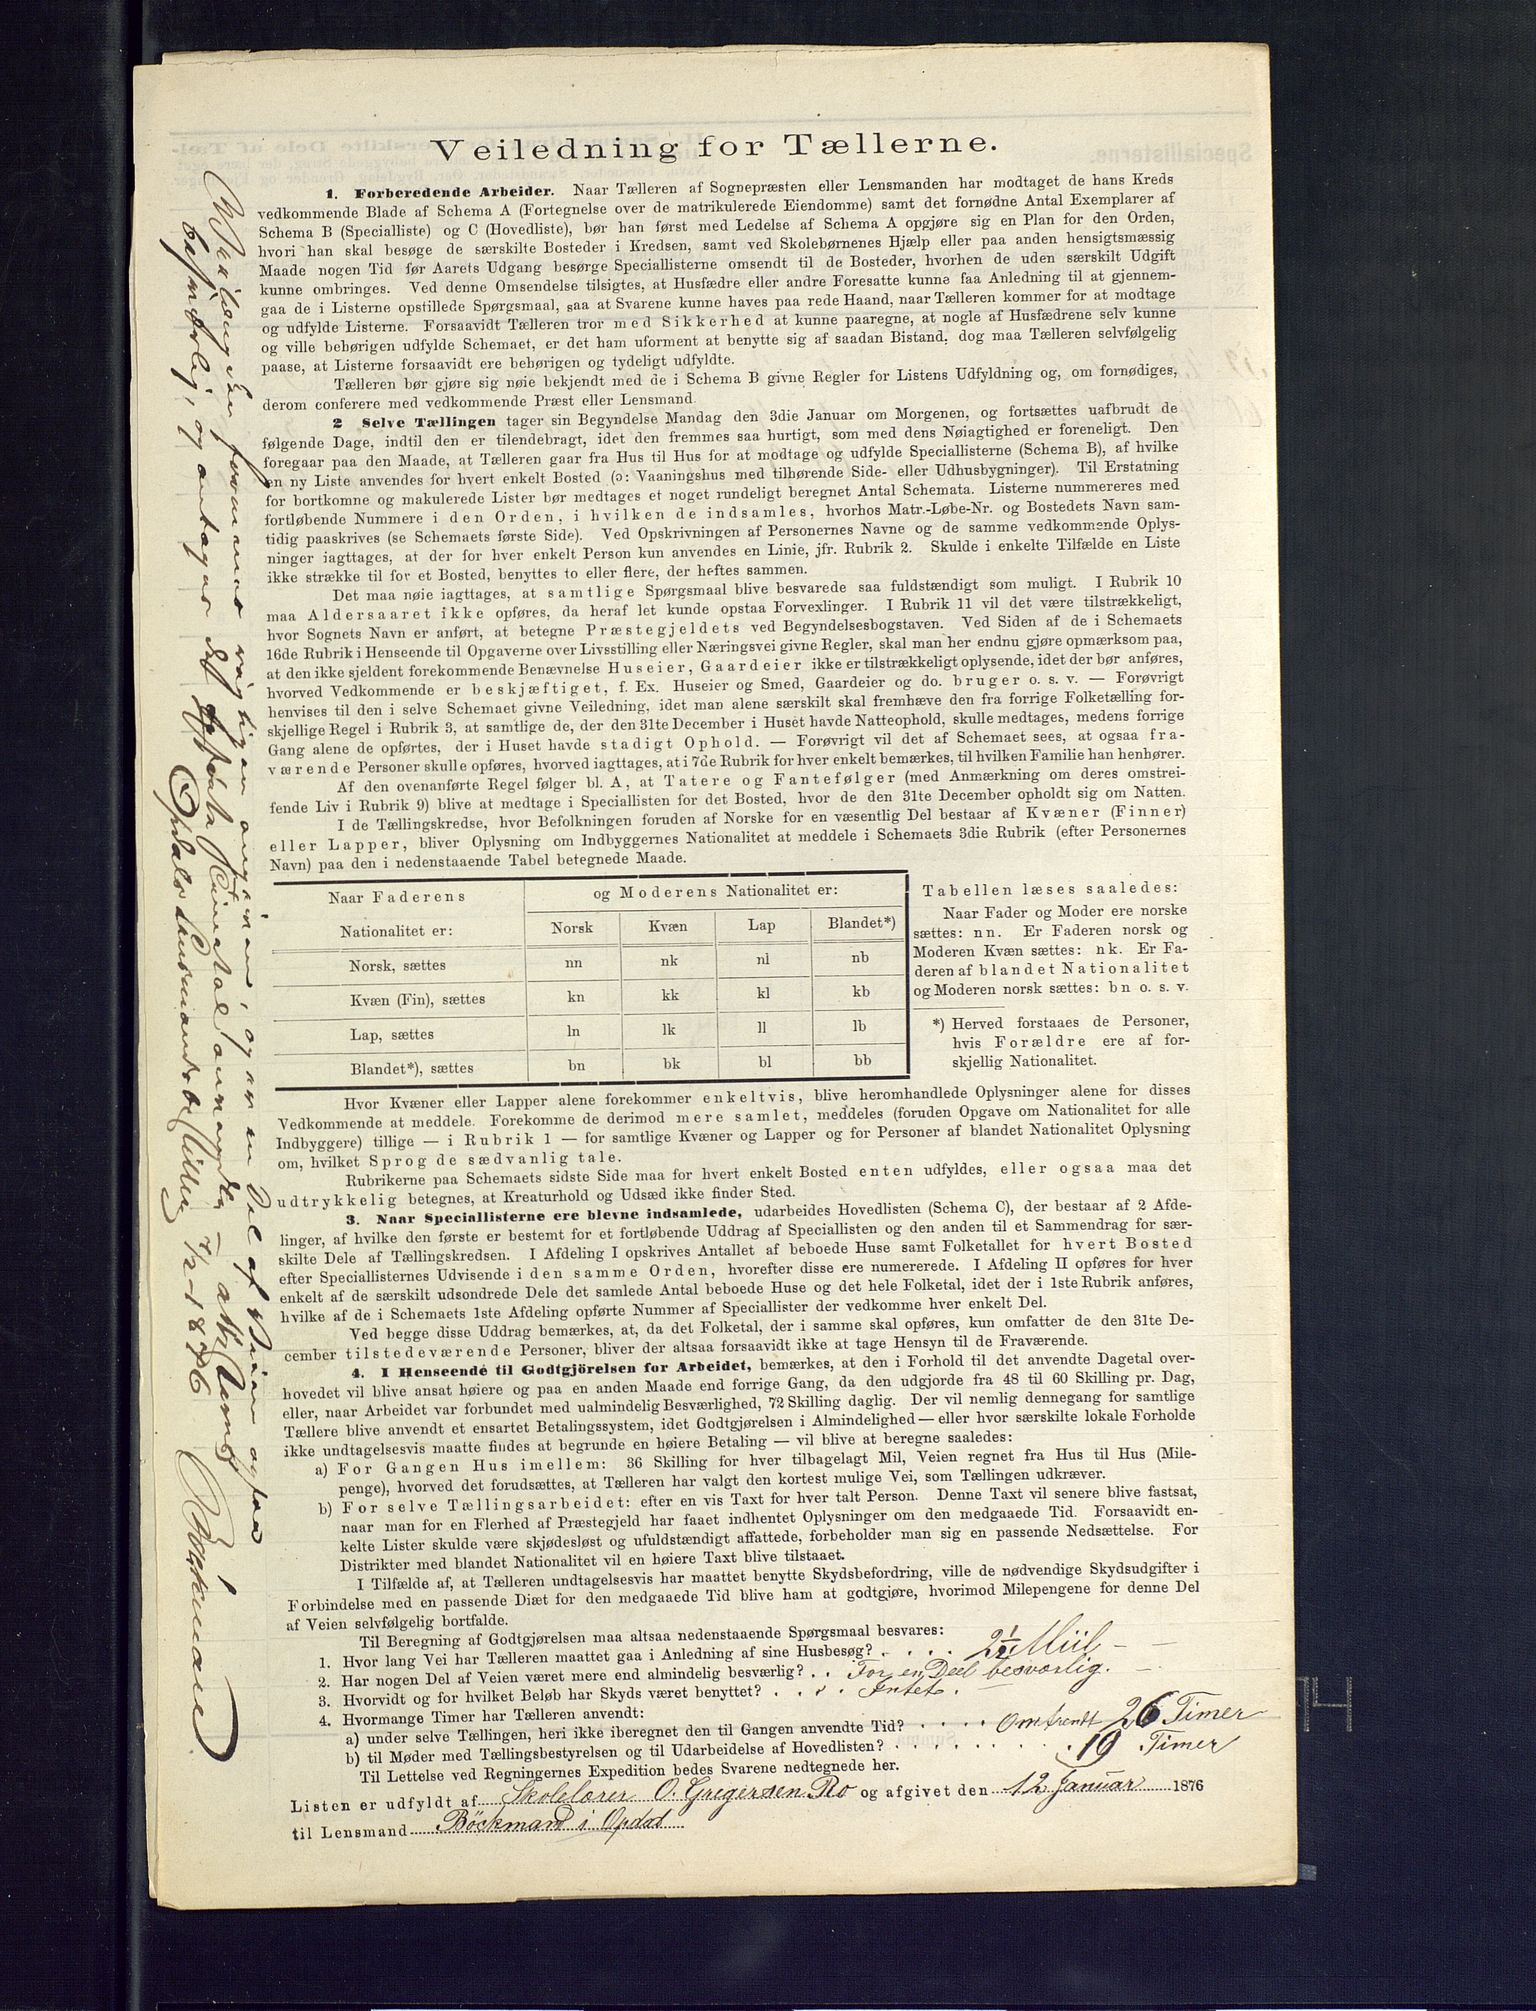 Veiledning for Tællerne.
1. Forberedende Arbeider. Naar Tælleren af Sognepræsten eller Lensmanden har modtaget de hans Kreds
vedkommende Blade af Schema A (Fortegnelse over de matrikulerede Eiendomme) samt det fornødne Antal Exemplarer af
Schema B (Specialliste) og C (Hovedliste), bør han først med Ledelse af Schema A opgjøre sig en Plan for den Orden,
hvori han skal besøge de særskilte Bosteder i Kredsen, samt ved Skolebørnenes Hjælp eller paa anden hensigtsmæssig
Maade nogen Tid før Aarets Udgang besørge Speciallisterne omsendt til de Bosteder, hvorhen de uden særskilt Udgift
kunne ombringes. Ved denne Omsendelse tilsigtes, at Husfædre eller andre Foresatte kunne faa Anledning til at gjennem-
gaa de i Listerne opstillede Spørgsmaal, saa at Svarene kunne haves paa rede Haand, naar Tælleren kommer for at modtage
og udfylde Listerne. Forsaavidt Tælleren tror med Sikkerhed at kunne paaregne, at nogle af Husfædrene selv kunne
og ville behørigen udfylde Schemaet, er det ham uforment at benytte sig af saadan Bistand, dog maa Tælleren selvfølgelig
paase, at Listerne forsaavidt ere behørigen og tydeligt udfyldte.
Tælleren bør gjøre sig nøie bekjendt med de i Schema B givne Regler for Listens Udfyldning og, om fornødiges,
derom conferere med vedkommende Præst eller Lensmand.
2 Selve Tællingen tager sin Begyndelse Mandag den 3die Januar om Morgenen, og fortsættes uafbrudt de
følgende Dage, indtil den er tilendebragt, idet den fremmes saa hurtigt, som med dens Nøiagtighed er foreneligt. Den
foregaar paa den Maade, at Tælleren gaar fra Hus til Hus for at modtage og udfylde Speciallisterne (Schema B), af hvilke
en ny Liste anvendes for hvert enkelt Bosted (ɔ: Vaaningshus med tilhørende Side- eller Udhusbygninger). Til Erstatning
for bortkomne og makulerede Lister bør medtages et noget rundeligt beregnet Antal Schemata. Listerne nummereres med
fortløbende Nummere i den Orden, i hvilken de indsamles, hvorhos Matr.-Løbe-Nr. og Bostedets Navn sam-
tidig paaskrives (se Schemaets første Side). Ved Opskrivningen af Personernes Navne og de samme vedkommende Oplys-
ninger iagttages, at der for hver enkelt Person kun anvendes en Linie, jfr. Rubrik 2. Skulde i enkelte Tilfælde en Liste
ikke strække til for et Bosted, benyttes to eller flere, der heftes sammen.
Det maa nøie iagttages, at samtlige Spørgsmaal blive besvarede saa fuldstændigt som muligt. I Rubrik 10
maa Aldersaaret ikke opføres, da heraf let kunde opstaa Forvexlinger. I Rubrik 11 vil det være tilstrækkeligt,
hvor Sognets Navn er anført, at betegne Præstegjeldets ved Begyndelsesbogstaven. Ved Siden af de i Schemaets
16de Rubrik i Henseende til Opgaverne over Livsstilling eller Næringsvei givne Regler, skal man her endnu gjøre opmærksom paa,
at den ikke sjeldent forekommende Benævnelse Huseier, Gaardeier ikke er tilstrækkeligt oplysende, idet der bør anføres,
hvorved Vedkommende er beskjæftiget, f. Ex. Huseier og Smed, Gaardeier og do. bruger o. s. v. — Forøvrigt
henvises til den i selve Schemaet givne Veiledning, idet man alene særskilt skal fremhæve den fra forrige Folketælling for-
skjellige Regel i Rubrik 3, at samtlige de, der den 31te December i Huset havde Natteophold, skulle medtages, medens forrige
Gang alene de opførtes, der i Huset havde stadigt Ophold. — Forøvrigt vil det af Schemaet sees, at ogsaa fra-
værende Personer skulle opføres, hvorved iagttages, at i 7de Rubrik for hver enkelt bemærkes, til hvilken Familie han henhører.
Af den ovenanførte Regel følger bl. A., at Tatere og Fantefølger (med Anmærkning om deres omstrei-
fende Liv i Rubrik 9) blive at medtage i Speciallisten for det Bosted, hvor de den 31te December opholdt sig om Natten.
I de Tællingskredse, hvor Befolkningen foruden af Norske for en væsentlig Del bestaar af Kvæner (Finner)
eller Lapper, bliver Oplysning om Indbyggernes Nationalitet at meddele i Schemaets 3die Rubrik (efter Personernes
Navn) paa den i nedenstaaende Tabel betegnede Maade.
Naar Faderens og Moderens Nationalitet er:
Nationalitet er: Norsk Kvæn Lap Blandet*)
Norsk, sættes nn nk nl nb
Kvæn (Fin), sættes kn kk kl kb
Lap, sættes ln lk ll lb
Blandet*), sættes bn bk bl bb
Tabellen læses saaledes:
Naar Fader og Moder ere norske
sættes: nn. Er Faderen norsk og
Moderen Kvæn sættes: nk. Er Fa-
deren af blandet Nationalitet
og Moderen norsk sættes: bn o. s. v.
*) Herved forstaaes de Personer,
hvis Forældre ere af for-
skjellig Nationalitet.
Hvor Kvæner eller Lapper alene forekommer enkeltvis, blive heromhandlede Oplysninger alene for disses
Vedkommende at meddele. Forekomme de derimod mere samlet, meddeles (foruden Opgave om Nationalitet for alle
Indbyggere) tillige — i Rubrik 1 — for samtlige Kvæner og Lapper og for Personer af blandet Nationalitet Oplysning
om, hvilket Sprog de sædvanlig tale.
Rubrikerne paa Schemaets sidste Side maa for hvert enkelt Bosted enten udfyldes, eller ogsaa maa det
udtrykkelig betegnes, at Kreaturhold og Udsæd ikke finder Sted.
3. Naar Speciallisterne ere blevne indsamlede, udarbeides Hovedlisten (Schema C), der bestaar af 2 Afde-
linger, af hvilke den første er bestemt for et fortløbende Uddrag af Speciallisten og den anden til et Sammendrag for sær-
skilte Dele af Tællingskredsen. I Afdeling I opskrives Antallet af beboede Huse samt Folketallet for hvert Bosted
efter Speciallisternes Udvisende i den samme Orden, hvorefter disse ere nummererede. I Afdeling II opføres for hver
enkelt af de særskilt udsondrede Dele det samlede Antal beboede Huse og det hele Folketal, idet der i 1ste Rubrik anføres,
hvilke af de i Schemaets 1ste Afdeling opførte Nummer af Speciallister der vedkomme hver enkelt Del.
Ved begge disse Uddrag bemærkes, at, da det Folketal, der i samme skal opføres, kun omfatter de den 31te De-
cember tilstedeværende Personer, bliver der altsaa forsaavidt ikke at tage Hensyn til de Fraværende.
4. I Henseende til Godtgjörelsen for Arbeidet, bemærkes, at den i Forhold til det anvendte Dagetal over-
hovedet vil blive ansat høiere og paa en anden Maade end forrige Gang, da den udgjorde fra 48 til 60 Skilling pr. Dag,
eller, naar Arbeidet var forbundet med ualmindelig Besværlighed, 72 Skilling daglig. Der vil nemlig dennegang for samtlige
Tællere blive anvendt et ensartet Betalingssystem, idet Godtgjørelsen i Almindelighed — eller hvor særskilte lokale Forholde
ikke undtagelsesvis maatte findes at begrunde en høiere Betaling — vil blive at beregne saaledes:
a) For Gangen Hus imellem: 36 Skilling for hver tilbagelagt Mil, Veien regnet fra Hus til Hus (Mile-
penge), hvorved det forudsættes, at Tælleren har valgt den kortest mulige Vei, som Tællingen udkræver.
b) For selve Tællingsarbeidet: efter en vis Taxt for hver talt Person. Denne Taxt vil senere blive fastsat,
naar man for en Flerhed af Præstegjeld har faaet indhentet Oplysninger om den medgaaede Tid. Forsaavidt en-
kelte Lister skulde være skjødesløst og ufuldstændigt affattede, forbeholder man sig en passende Nedsættelse. For
Distrikter med blandet Nationalitet vil en høiere Taxt blive tilstaaet.
I Tilfælde af, at Tælleren undtagelsesvis har maattet benytte Skydsbefordring, ville de nødvendige Skydsudgifter i
Forbindelse med en passende Diæt for den medgaaede Tid blive ham at godtgjøre, hvorimod Milepengene for denne Del
af Veien selvfølgelig bortfalde.
Til Beregning af Godtgjørelsen maa altsaa nedenstaaende Spørgsmaal besvares:
1. Hvor lang Vei har Tælleren maattet gaa i Anledning af sine Husbesøg? . . . . 2 1/2 Miil - -
2. Har nogen Del af Veien været mere end almindelig besværlig? . . For en Deel besværlig. -
3. Hvorvidt og for hvilket Beløb har Skyds været benyttet? . . . . Intet.
4. Hvormange Timer har Tælleren anvendt:
a) under selve Tællingen, heri ikke iberegnet den til Gangen anvendte Tid? . . . . Omtrendt 26 Timer
b) til Møder med Tællingsbestyrelsen og til Udarbeidelse af Hovedlisten? . . . . . . . . 19 Timer
Til Lettelse ved Regningernes Expedition bedes Svarene nedtegnede her.
Listen er udfyldt af Skolelærer O. Gregersen Ro og afgivet den 12 Januar 1876
til Lensmand Böckmand i Opdal
Veilængden formenes rigtig an og er en Del af Veien ogsaa
besværlig, og antages det opførte Timetal
Opdals Lensmandsbestilling 7/2-1876 Böckmann